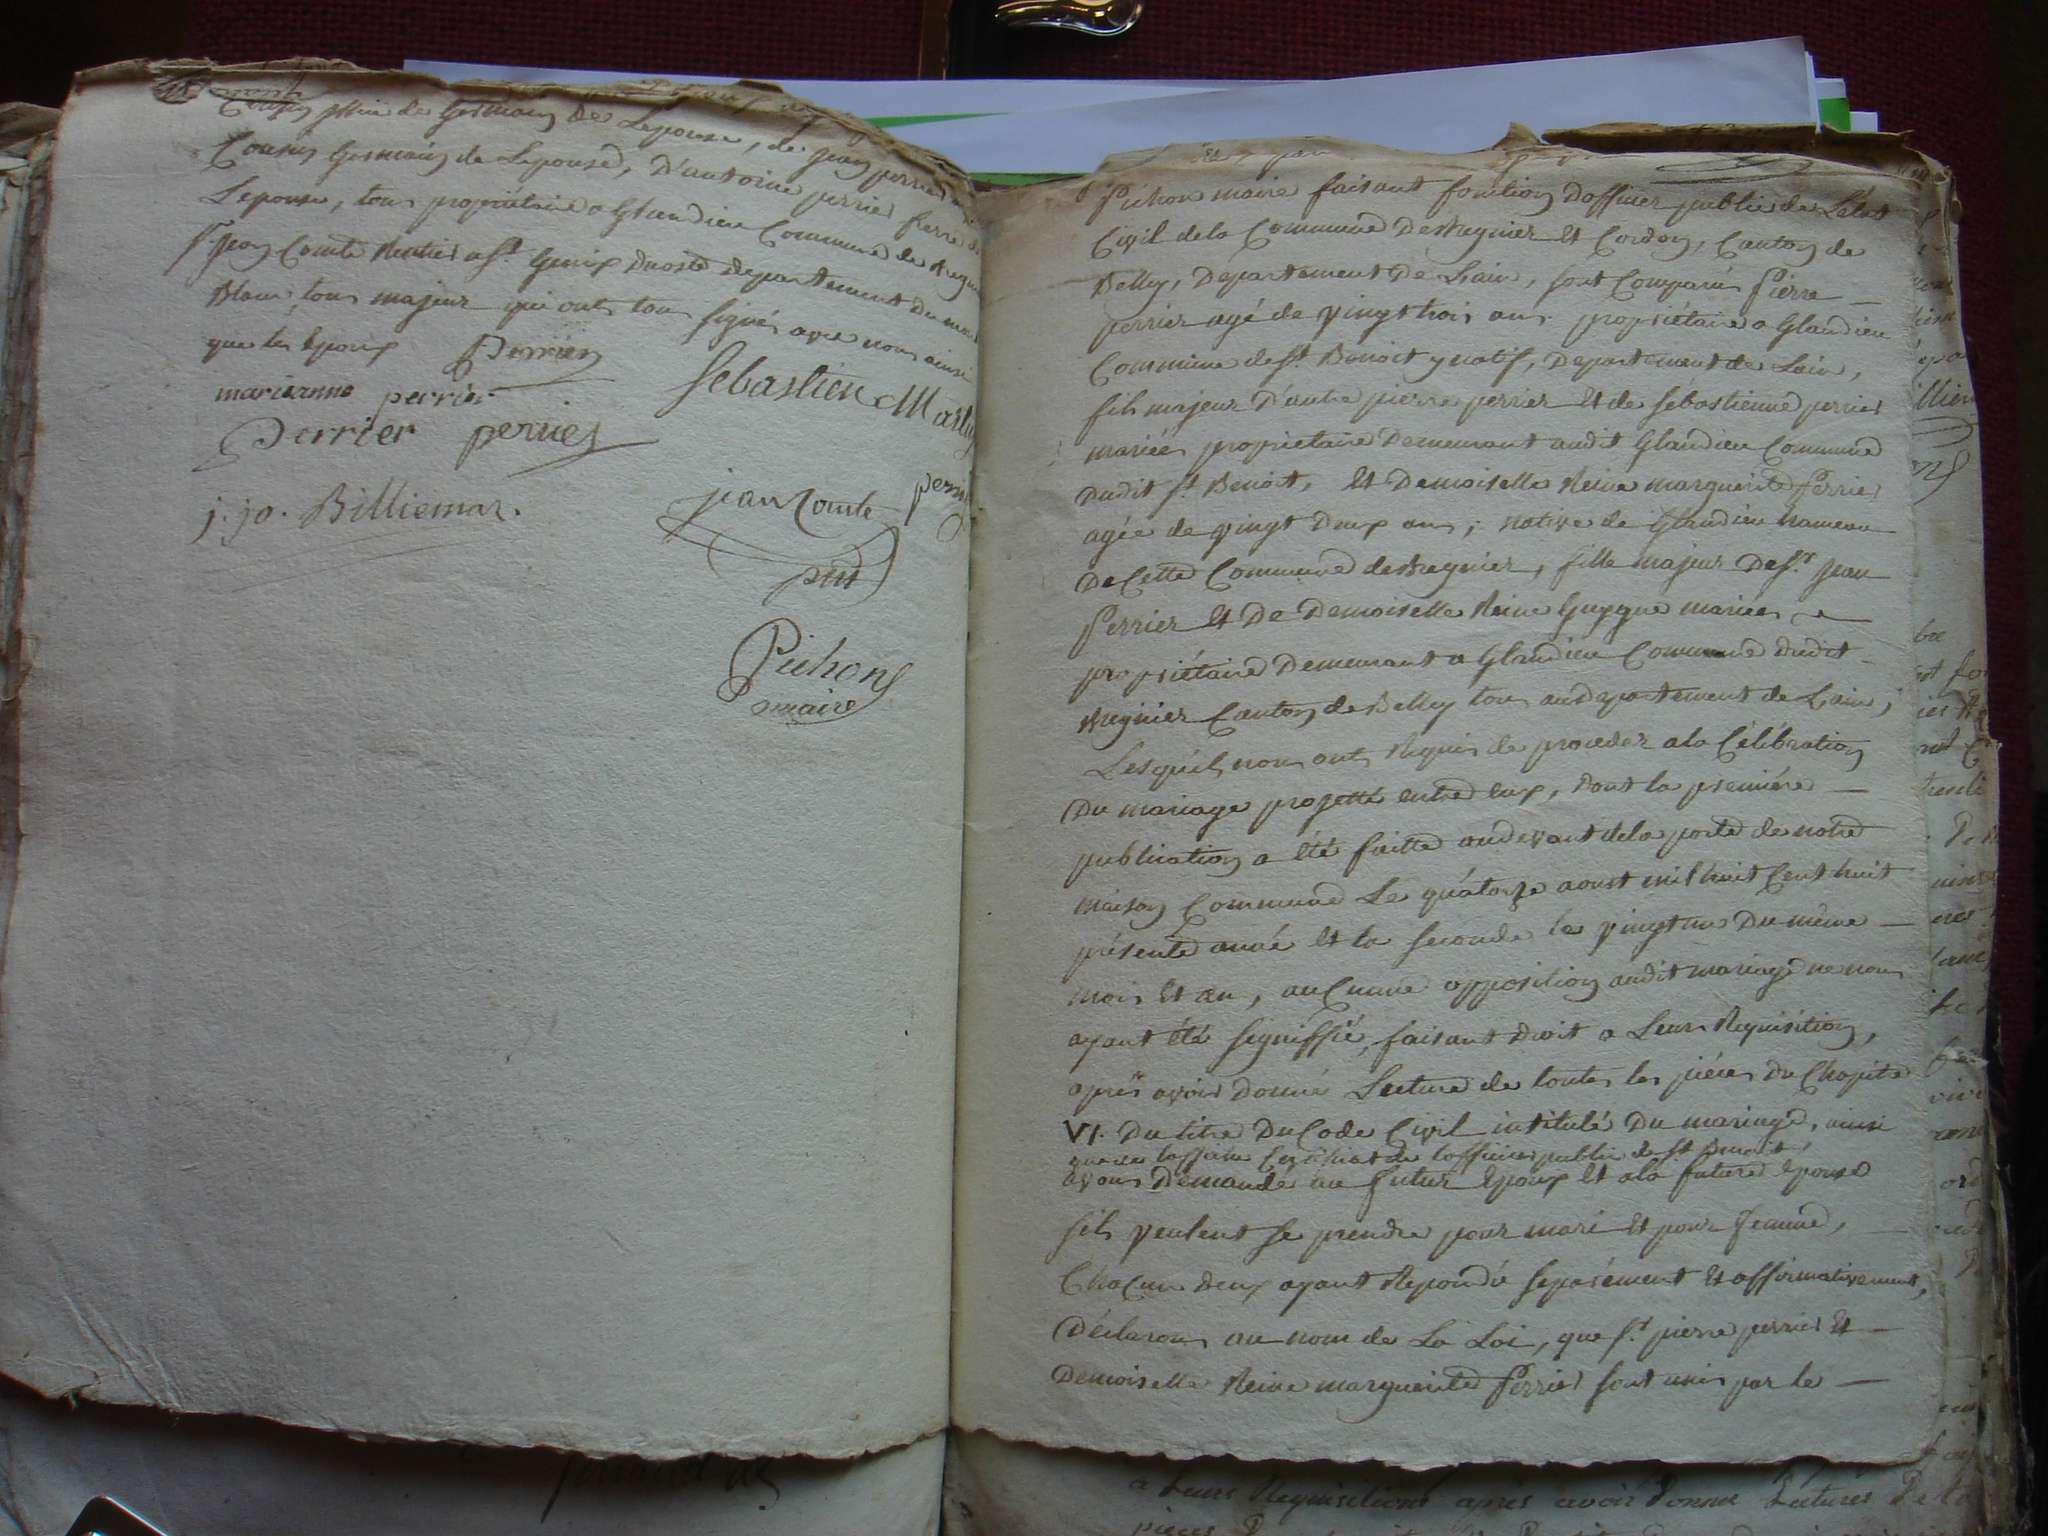 Cousin issû de Germain de Lepouse, de jean perrier
Cousin Germain de Lepouse, D'antoine perrier frere de
Lepouse, tous propriétaire a Glandieu Commune de Bregnier
Sr jean Comte Rentier a St Genix Daoste Departement du mont
Blanc, tous majeur qui ont tous signés avec nous ainsi
que les Epoux Perrier
marieanne perrier Sebastien Martin
Perrier perrier
j. jo. Billiemaz. jean Comte perrier
Pichon
maire
Pichon maire faisant fonction Dofficier public de Létat
Civil dela Commune De Bregnier Et Cordon, Canton de
Belley, Departement De Lain, sont Comparus Pierre
perrier agé de vingt trois ans propriétaire a Glandieu
Commune de St Benoit y natif, Departement de Lain,
fils majeur D'autre pierre perrier Et de sébastienne perrier
mariés propriétaire Demeurant audit Glandieu Commune
Dudit St Benoit, Et Demoiselle Reine marguerite Perrier
agée de vingt Deux ans, native de Glandieu hameau
De Cette Commune de Bregnier, fille majeur De Sr jean
Perrier Et De Demoiselle Reine Guygue mariés
propriétaire Demeurant a Glandieu Commune Dudit
Bregnier Canton de Belley tous au departement de Lain,
Lesquels nous ont Requis de proceder ala Célébration
Du mariage projetté entre Eux, Dont la premiére
publication a été faitte audevant dela porte de notre
maison Commune Le quatorze aoust mil huit Cent huit
présente année Et la seconde le vingt un Du même
mois Et an, auCunne opposition audit mariage ne nous
ayant été signiffié, faisant Droit a Leurs Réquisition,
après avoir Donné Lecture de toutes les piéces Du Chapitre
VI. Du titre Du Code Civil intitulé Du mariage, ainsi
de lofficier public de St Benoit
avons Demandé au futur Epoux Et ala future Epouse
sils veulent se prendre pour mari Et pour femme,
ChaCun Deux ayant Repondû séparément Et affirmativement,
Déclarons au nom de La Loi, que Sr pierre perrier Et
Demoiselle Reine marguerite Perrier sont unis par le
a Leurs Requisitions après avoir Donné Lectures De la